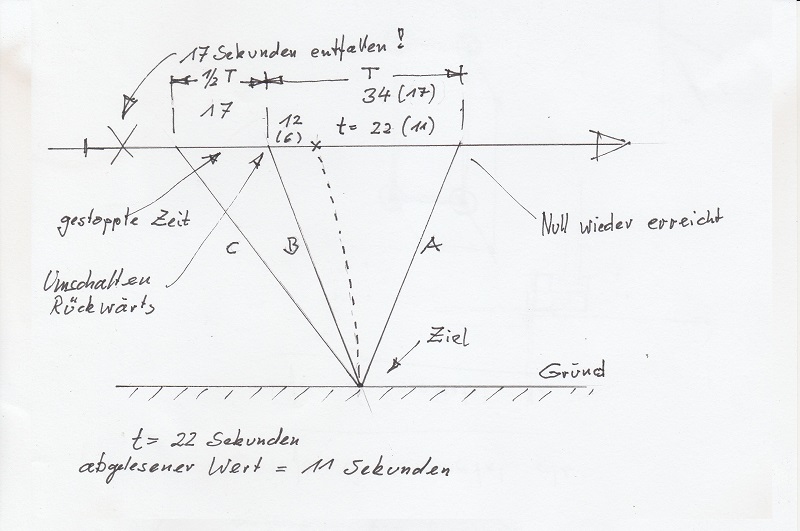 17 Sekunden entfallen!
½ T
T
17
34 (17)
12
(6)
t = 22 (11)
gestoppte Zeit
Null wieder erreicht
C
B
A
Umschalten
Rückwärts
Ziel
Grund
t = 22 Sekunden
abgelesener Wert = 11 Sekunden